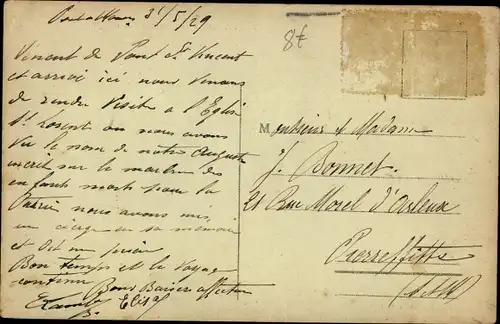 31/5/29
8€
Venant de Pont St Vincent
et arrivé ici nous venons
de rendre visite a l'Eglise
St Laurent ou nous avons
vu le nom de notre Auguste
inscrit sur le marbre des
enfants morts pour la
Patrie nous avons mis
un cierge en sa mémoire
et dit une prière
Bon temps et le voyage
continue
Bons Baisers affectueux
Elise
Monsieur et Madame
J. Bonnet
21 Rue Morel d'Arleux
Pierrefitte